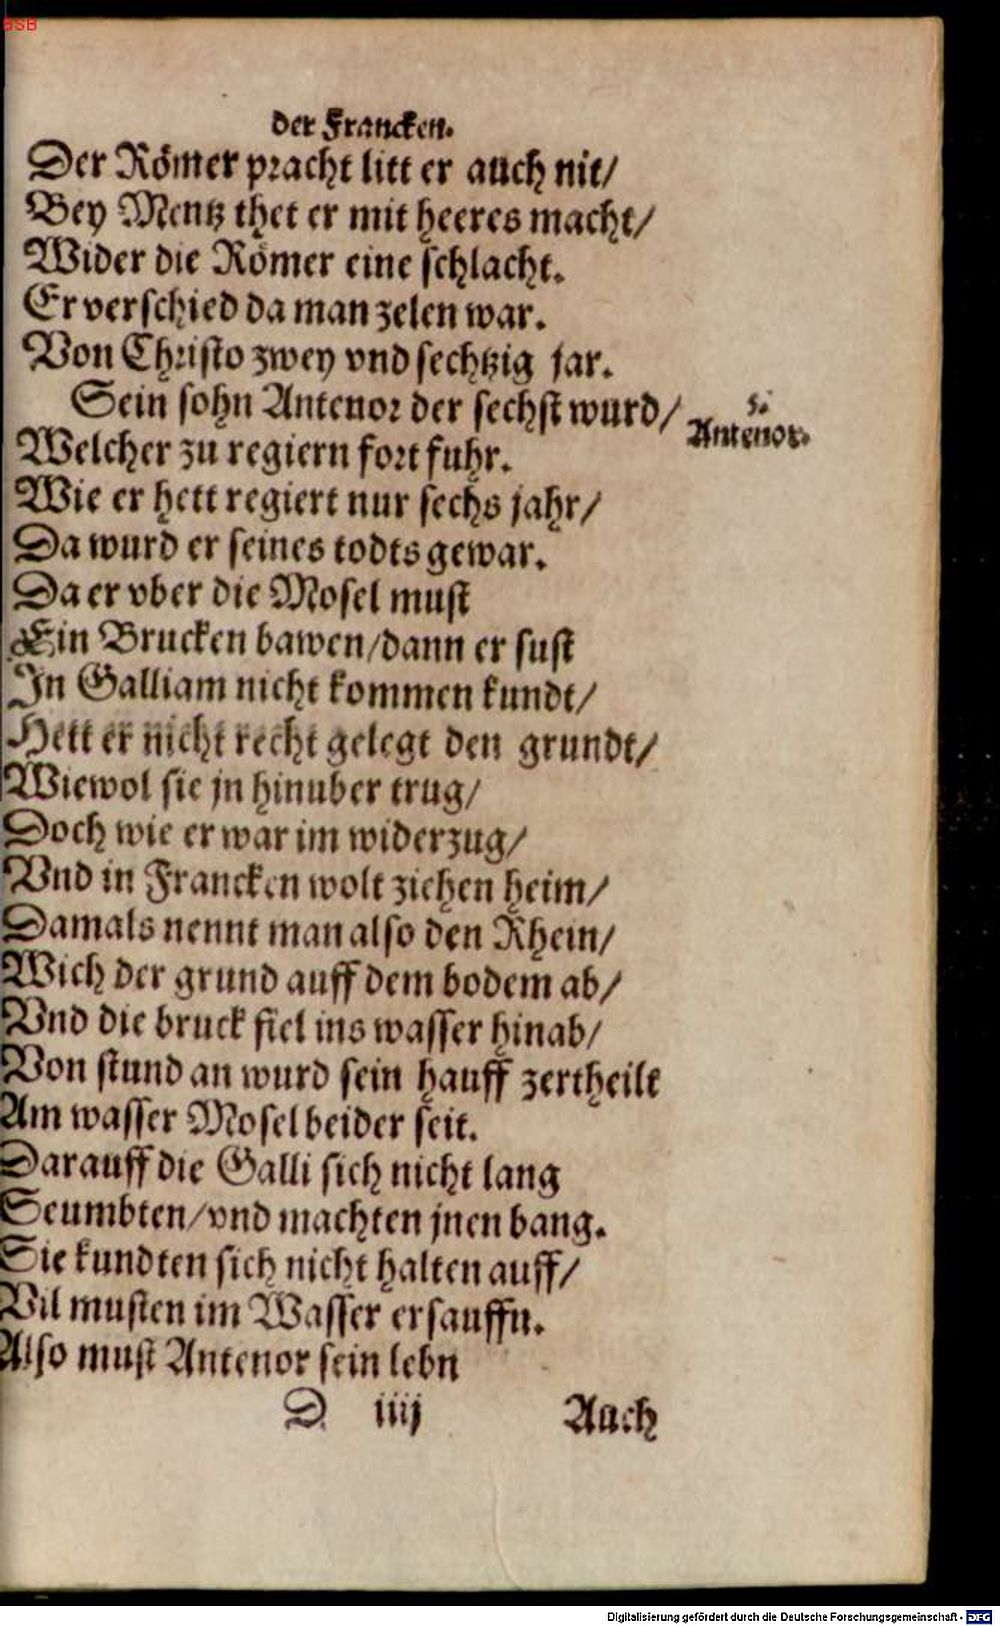 BSB
der Francken.
Der Römer pracht litt er auch nit/
Bey Mentz thet er mit heeres macht/
Wider die Römer eine schlacht.
Er verschied da man zelen war.
Von Christo zwey vnd sechtzig jar.
Sein sohn Antenor der sechst wurd/
5.
Antenor.
Welcher zu regiern fort fuhr.
Wie er hett regiert nur sechs jahr/
Da wurd er seines todts gewar.
Da er vber die Mosel must
Ein Brucken bawen/dann er sust
In Galliam nicht kommen kundt/
Hett er nicht recht gelegt den grundt/
Wiewol sie jn hinuber trug/
Doch wie er war im widerzug/
Vnd in Francken wolt ziehen heim/
Damals nennt man also den Rhein/
Wich der grund auff dem bodem ab/
Vnd die bruck fiel ins wasser hinab/
Von stund an wurd sein hauff zertheilt
Am wasser Mosel beider seit.
Darauff die Galli sich nicht lang
Seumbten/vnd machten jnen bang.
Sie kundten sich nicht halten auff/
Vil musten im Wasser ersauffn.
Also must Antenor sein lebn
D iiij Auch
Digitalisierung gefördert durch die Deutsche Forschungsgemeinschaft - DFG